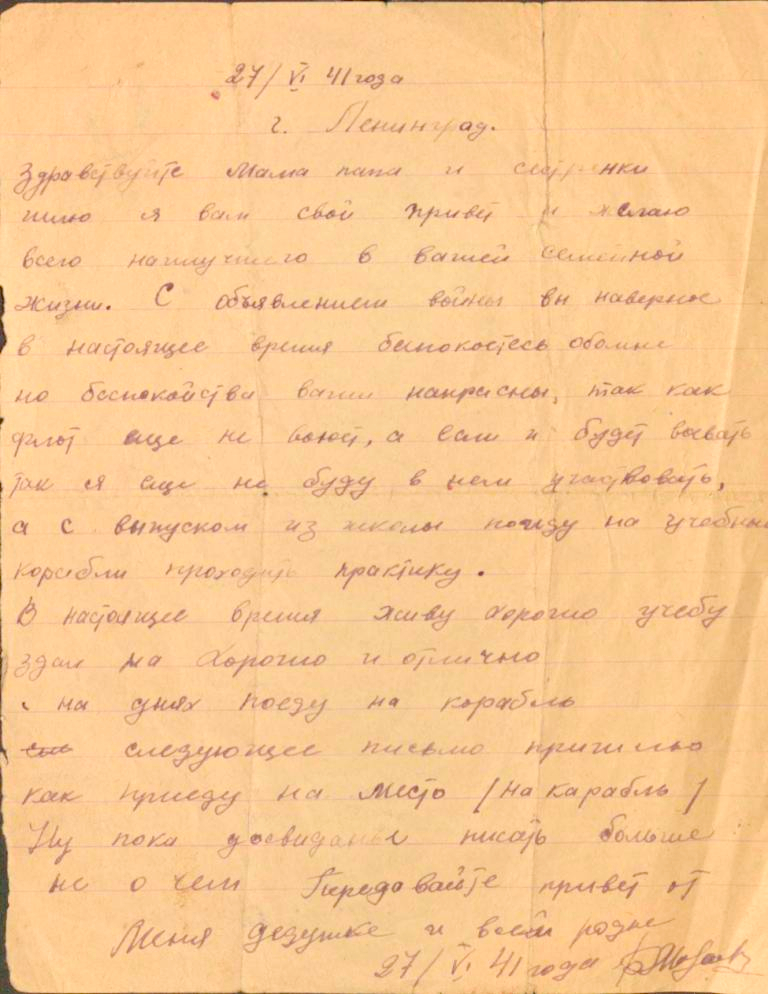 27/VI 41 года
г. Ленинград.
Здравствуйте Мама папа и сестренки
шлю я вам свой привет и желаю
всего наилучшего в вашей семейной
жизни. С объявлением войны вы наверное
в настоящее время беспокоетесь обомне
но беспокойства ваши напрасны, так как
флот еще не воюет, а если и будет воевать
так я еще не буду в нем участвовать,
а с выпуском из школы поеду на учебные
корабли проходить практику.
В настоящее время живу хорошо учебу
здал на хорошо и отлично
на днях поеду на корабль
следующее письмо пришлю
как приеду на место /на карабль/
Ну пока досвиданье писать больше
не о чем Передавайте привет от
Меня дедушке и всей родне
27/VI 41 года